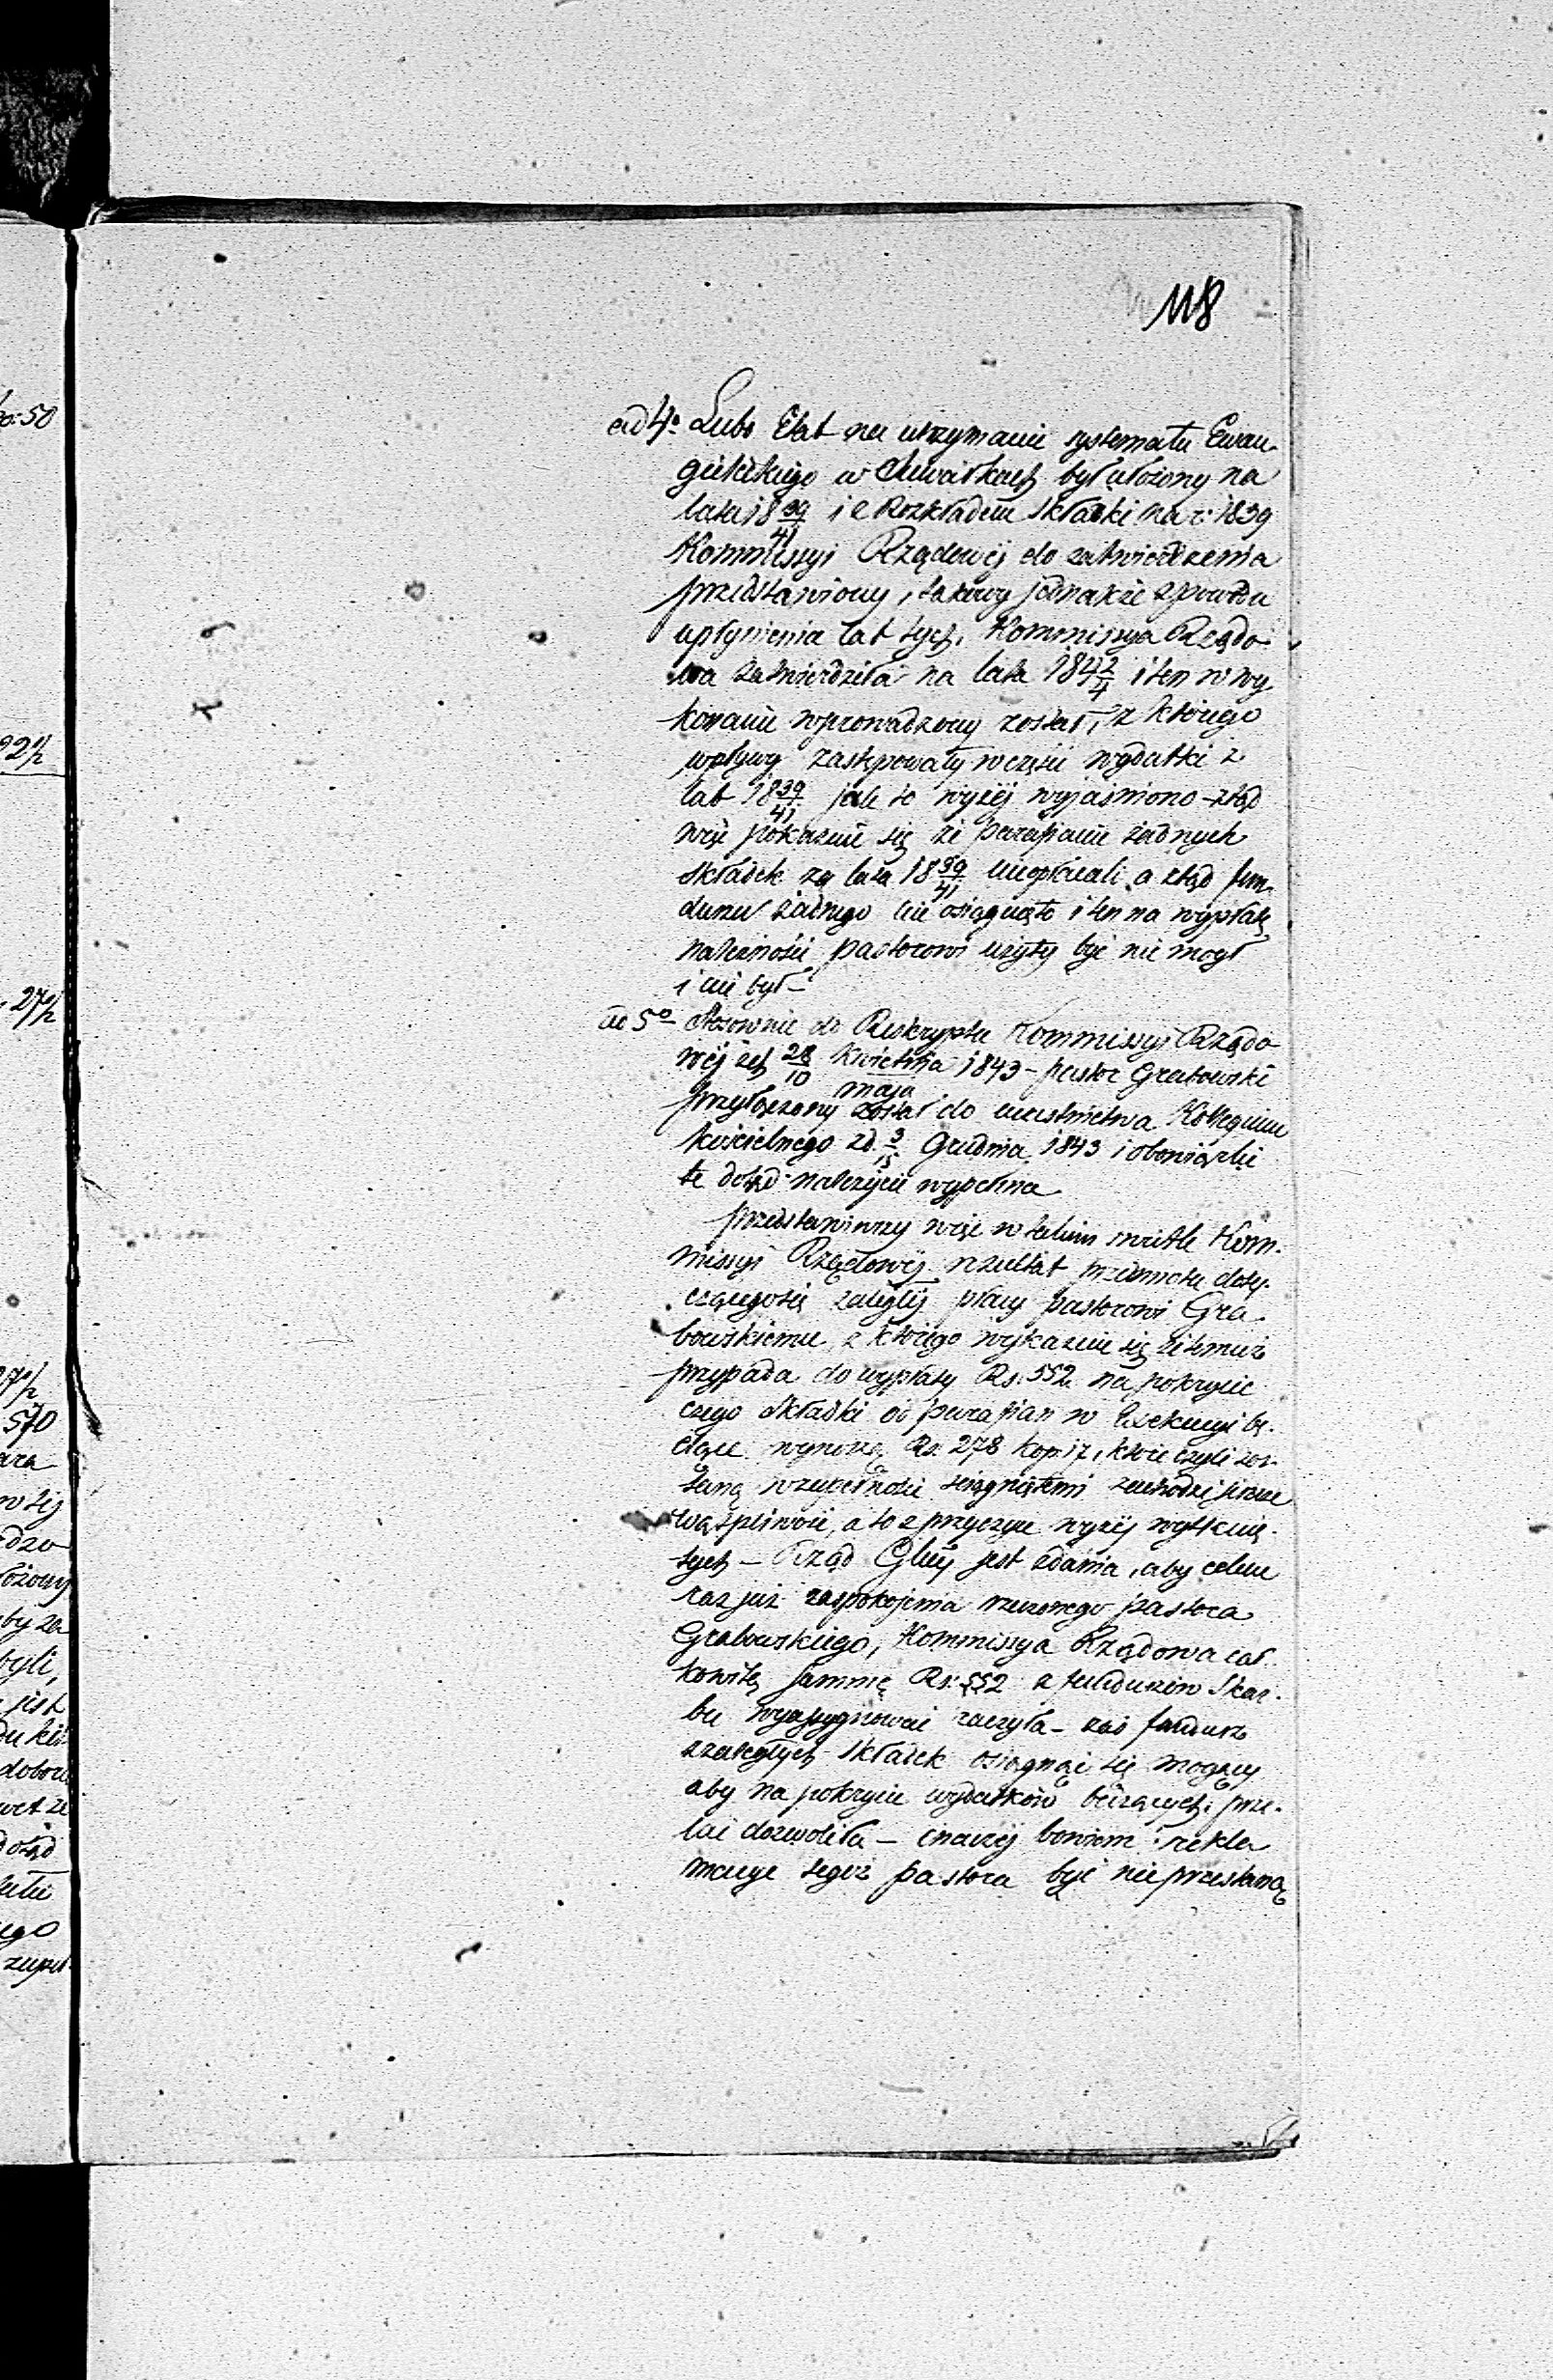 118
ad 4o Lubo Etat na utrzymanie systematu Ewan-
gielickiego w Suwałkach był ułożony na
lata 18 39/41 i z Rozkładem Składki na r. 1839
Kommissyi Rządowéj do zatwierdzenia
przedstawiony, takowy jednakże z powodu
upłynienia lat tych, Kommissya Rządo-
wa zatwierdziła na lata 184 2/4 i ten w wy-
konanie wprowadzony został, z którego
wpływy zastępowały w części wydatki z
lat 18 39/41 jak to wyżéj wyjaśniono – ztąd
więc pokazuie się że parafianie żadnych
Składek za lata 18 39/41 nieopłacali a ztąd fun-
duszu żadnego nie osiągnięto i ten na wypłatę
należności pastorowi użyty być nie mógł
i nie był –
ad 5o Stosownie do Reskryptu Kommissyi Rządo-
wéj z d. 28/10 Kwietnia/maja 1843 – pastor Grabowski
przyłączony został do uczestnictwa Kollegium
kościelnego z d. 3/15 Grudnia 1843 i obowiązki
te dotąd należycie wypełnia
przedstawiwszy więc w takim świetle Kom-
missyi Rządowéj rezultat przedmiotu doty-
czącegosię zaległéj płacy pastorowi Gra-
bowskiemu, z którego wykazuie się że temuż
przypada do wypłaty Rs. 552 na pokrycie
czego Składki od parafian w Exekucyi bę-
dące wynoszą Rs. 278 kop. 17, które czyli zos-
taną w zupełności ściągniętemi zachodzi
wątpliwość, a to z przyczyn wyżéj wytknię-
tych – Rząd Gbny jest zdania, aby celem
raz już zaspokojenia rzeczonego pastora
Grabowskiego, Kommissya Rządowa cał-
kowitą summę Rs. 552 z funduszów Skar-
bu wyassygnować raczyła – zaś fundusz
z zaległych Składek osiągnąć się mogący
aby na pokrycie wydatków bieżących prze-
lać dozwoliła – inaczéj bowiem rekla
macye tegoż pastora być nie przestaną